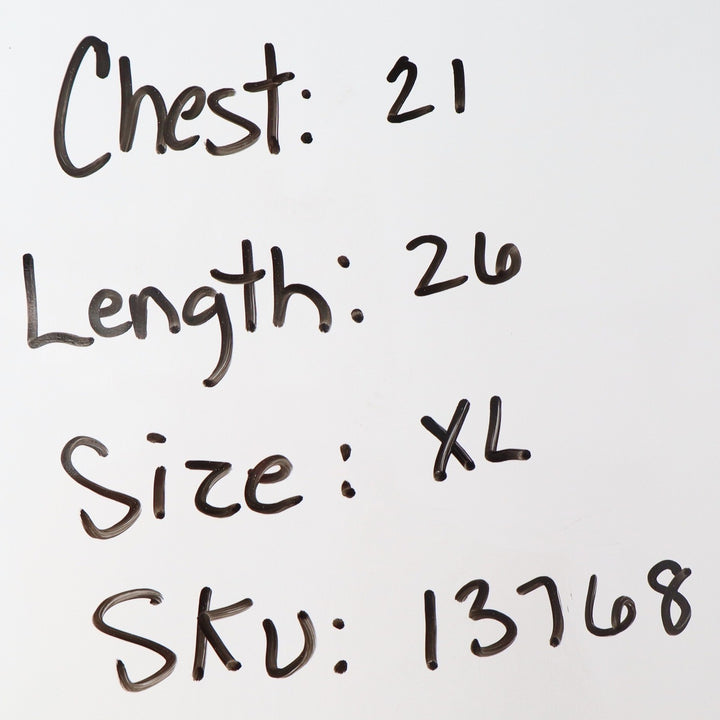 Chest: 21
Length: 26
Size: XL
SKU: 13768